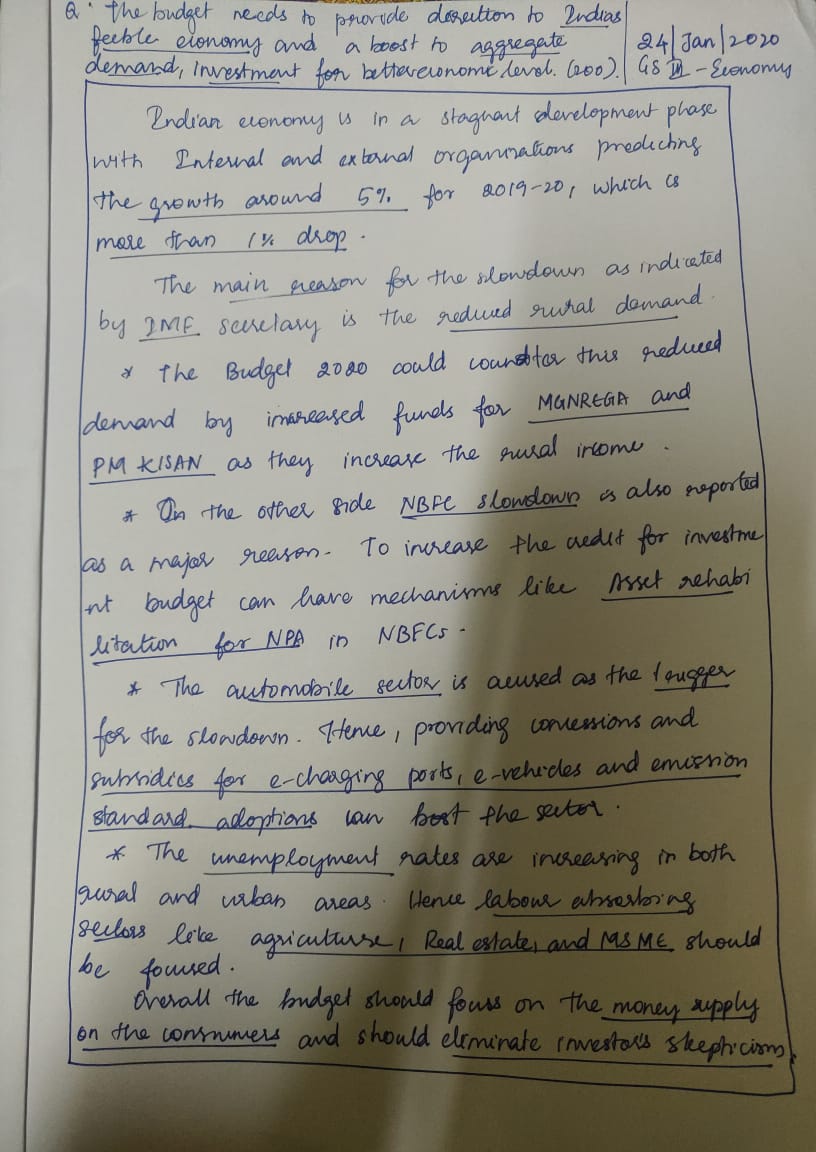 Q. The budget needs to provide direction to Indias
feeble economy and a boost to aggregate
demand, Investment for better economic level. (200).
24/Jan/2020
GS III - Economy
Indian economy is in a stagnant development phase
with Internal and external organizations predicting
the growth around 5% for 2019-20, which is
more than 1% drop.
The main reason for the slowdown as indicated
by IMF secretary is the reduced rural demand.
* The Budget 2020 could counter this reduced
demand by increased funds for MGNREGA and
PM KISAN as they increase the rural income.
* On the other side NBFC slowdown is also reported
as a major reason. To increase the credit for investme
nt budget can have mechanisms like Asset rehabi
litation for NPA in NBFCs.
* The automobile sector is accused as the trigger
for the slowdown. Hence, providing concessions and
subsidies for e-charging ports, e-vehicles and emission
standard adoptions can bost the sector.
* The unemployment rates are increasing in both
rural and urban areas. Hence labour absorbing
sectors like agriculture, Real estate, and MSME should
be focused.
Overall the budget should focus on the money supply
on the consumers and should eliminate investor's skepticism.